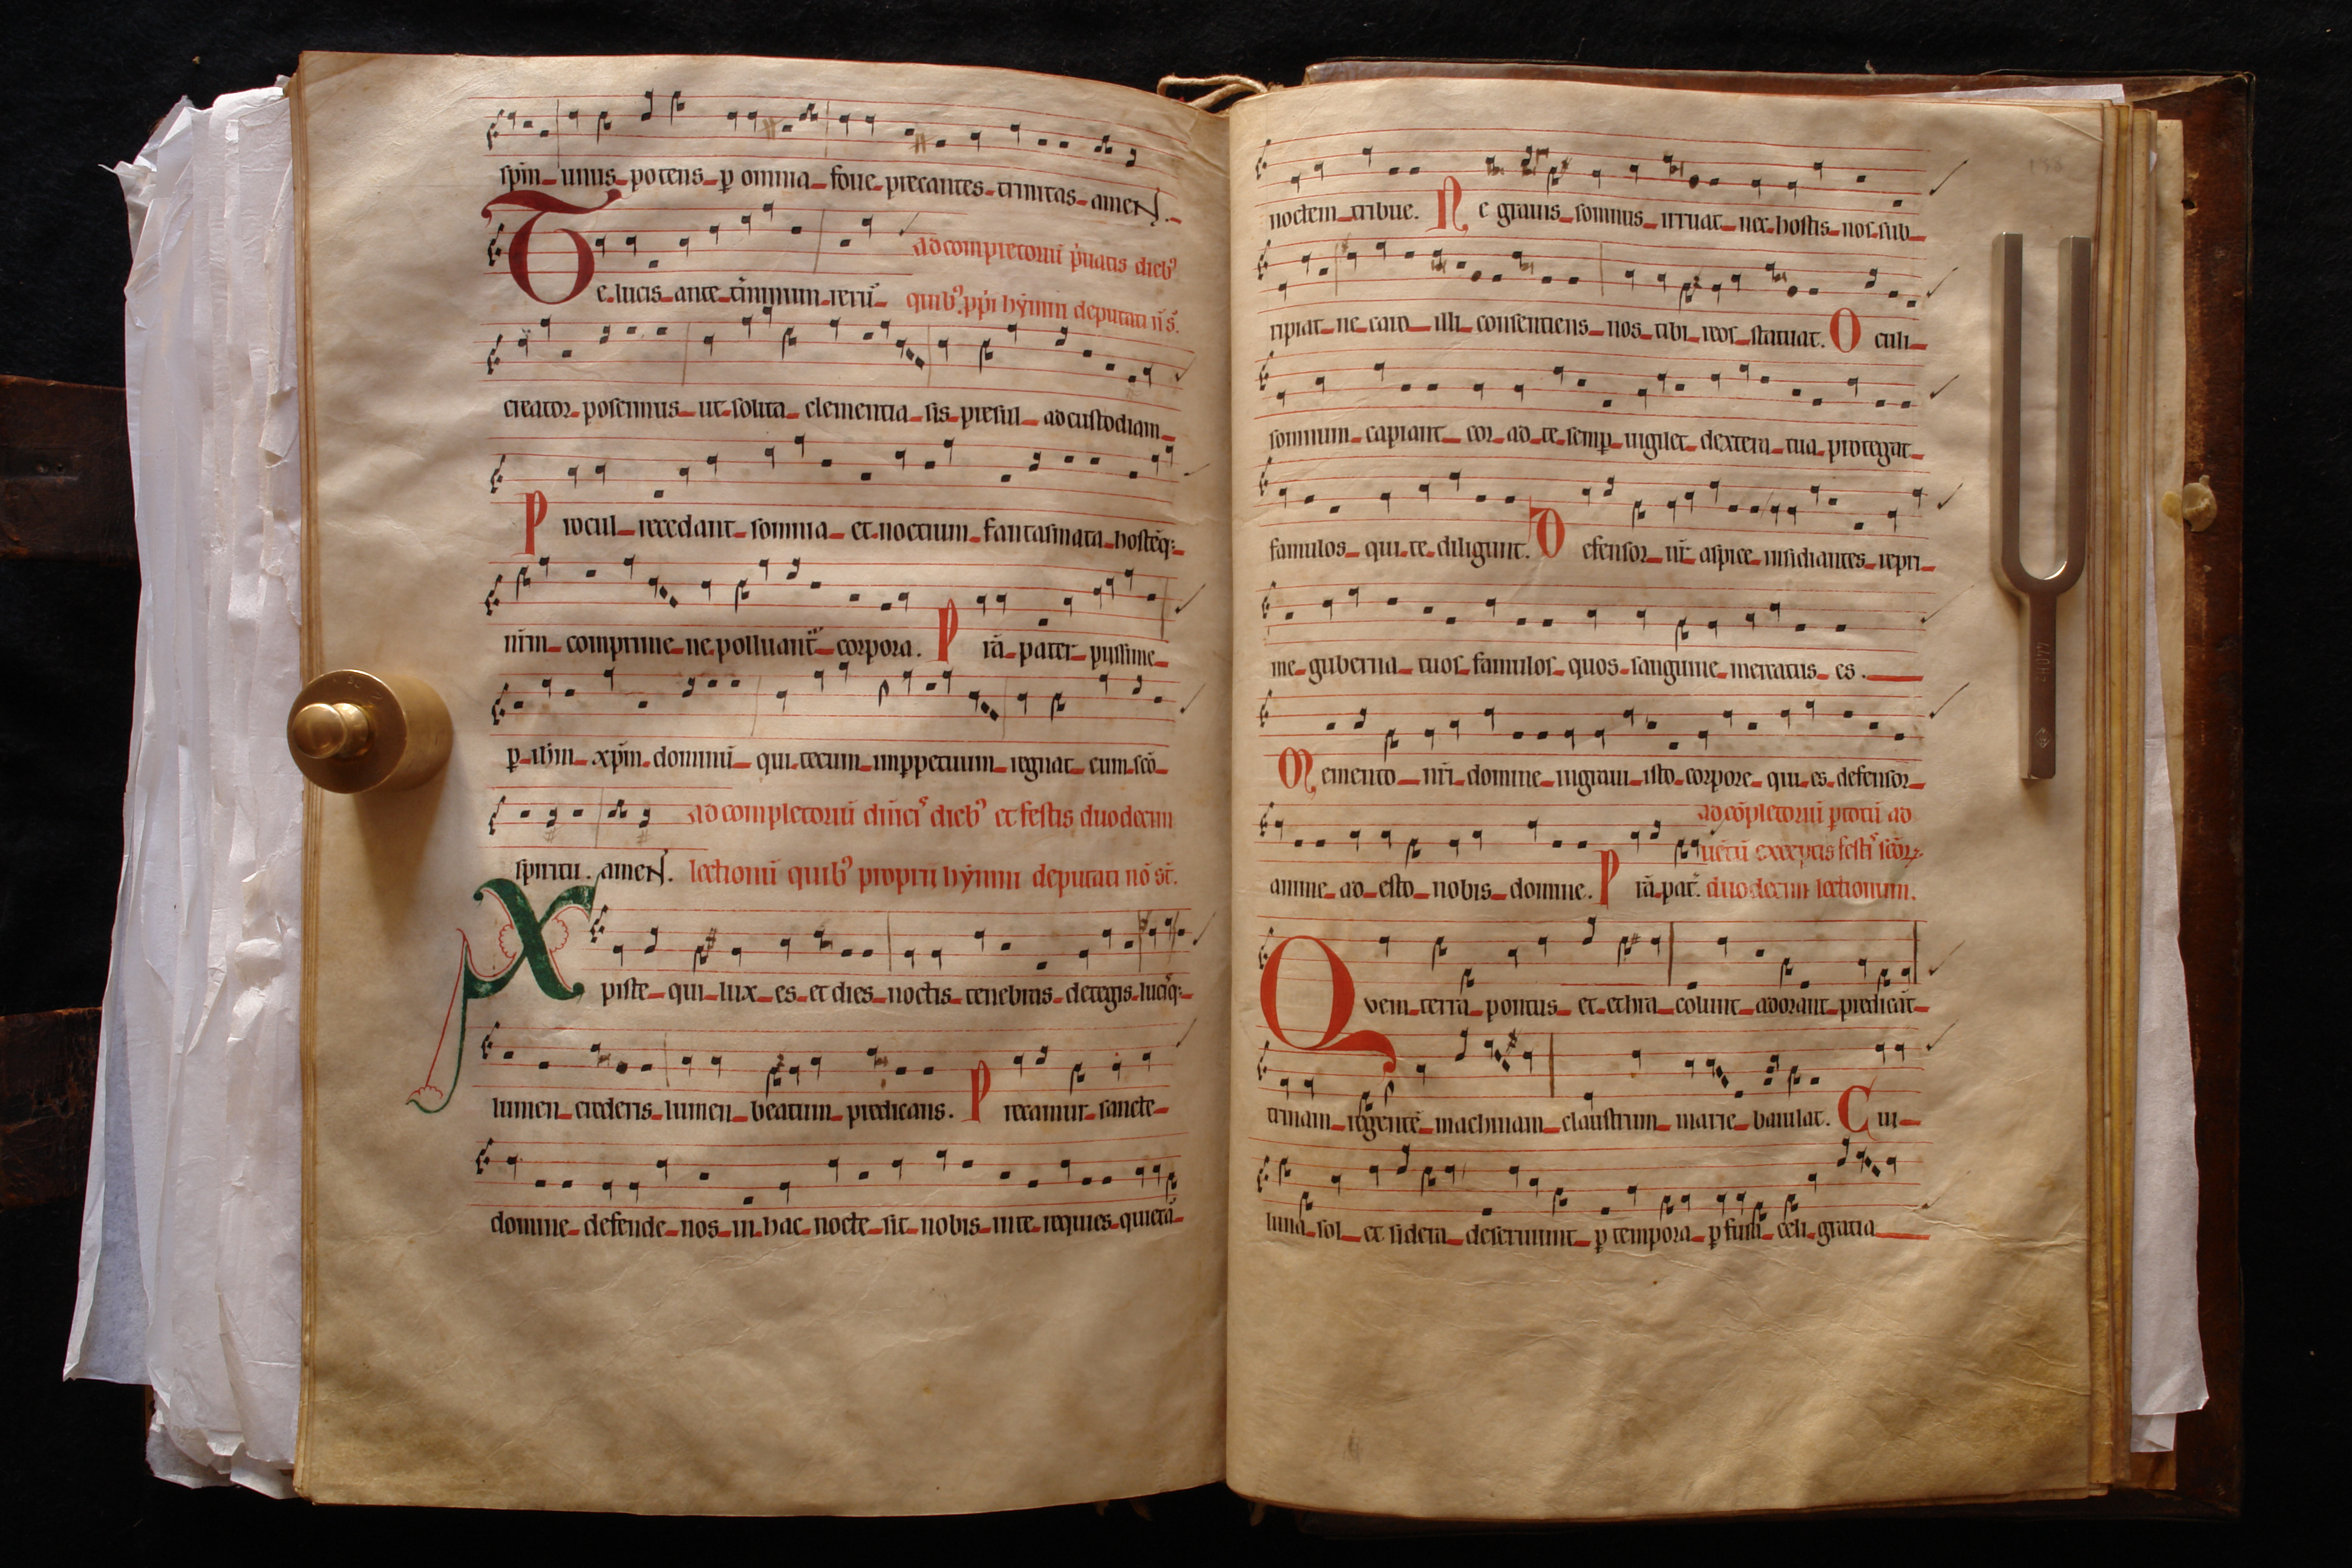 spm̄ unus potens p̱ omnia foue precantes trinitas ameN.
Te lucis ante t̄minum rerū
ad completoriū p̄uatis dieb⁹
quib⁹ pp̄i hẏmni deputati n̄ s̄.
creator poscimus ut solita clementia sis presul ad custodiam
Procul recedant somnia et noctium fantasmata hostēq;
nr̄m comprime ne polluant̄ corpora. P rā pater piissime
p̱ ih̄m xp̄m dominū qui tecum inp̱petuum regnat cum scō
ad completoriū dn̄ici⁹ dieb⁹ et festis duodecim
spiritu. ameN. lectionū quib⁹ proprii hẏmni deputati nō st̄.
Xpiste qui lux es et dies noctis tenebras detegis luciq;
lumen crederis lumen beatum predicans. Precamur sancte
domine defende nos in hac nocte sit nobis in te requies quietā
noctem tribue. Ne grauis somnus irruat nec hostis nos sub
ripiat ne caro illi consentiens nos tibi reos statuat. Oculi
somnum capiant cor ad te semp̱ uigilet dextera tua protegat
famulos qui te diligunt. Defensor nr̄ aspice insidiantes repri
me guberna tuos famulos quos sanguine mercatus es.
Memento nr̄i domine ingraui isto corpore qui es defensor
ad cōpletoriū p̱ totū ad
uētū exceptis festi⁹ scōꝝ
anime ad esto nobis domine. P rā pat̄. duodecim lectionum.
Qvem terra pontus et ethra colunt adorant predicāt
trinam regentē machinam claustrum marie baiulat. Cui
luna sol et sidera deseruiunt p̱ tempora p̱fusa celi gratia
440Hz